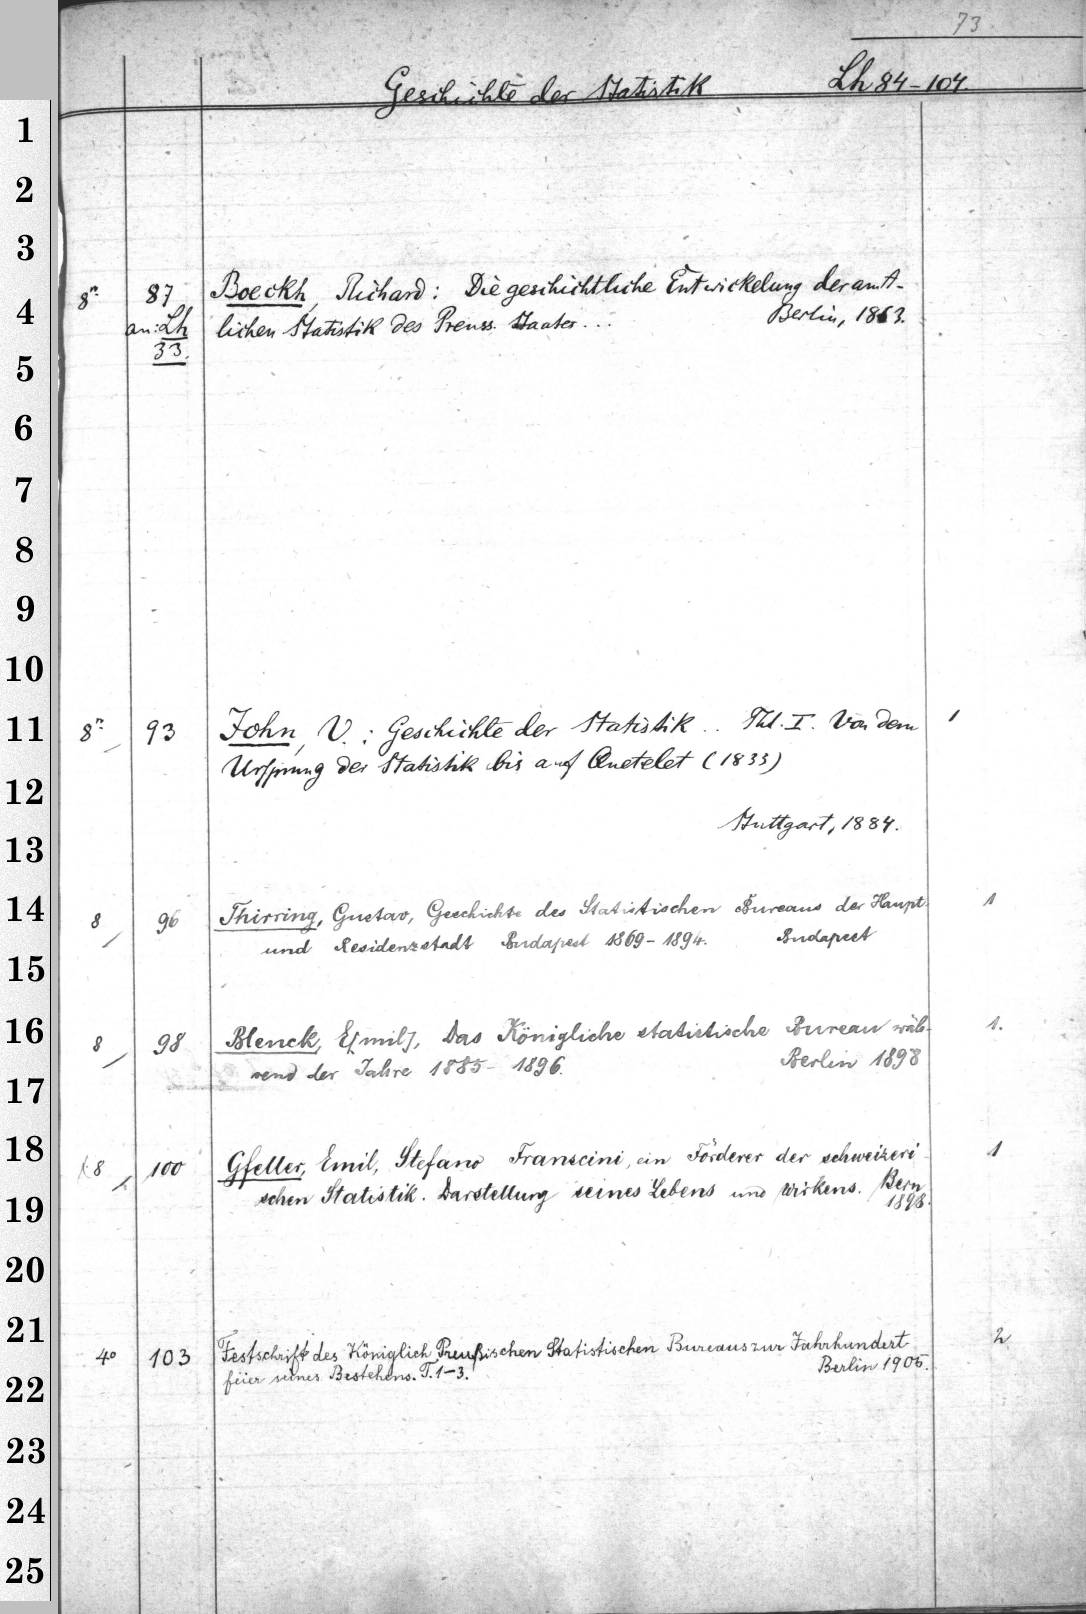 73
Geschichte der Statistik Lh 84-104.
1
2
3
8° 87 Boeckh, Richard: Die geschichtliche Entwickelung der amt-
4
an: Lh lichen Statistik des Preuss. Staates... Berlin, 1863.
33.
5
6
7
8
9
10
11
8° 93 John, V.: Geschichte der Statistik .. Thl. I. Von dem 1
Ursprung der Statistik bis auf Quetelet (1833)
12
Stuttgart, 1884.
13
14
8 96 Thirring, Gustav, Geschichte des Statistischen Bureaus der Haupt- 1
und Residenzstadt Budapest 1869-1894. Budapest
15
16
8 98 Blenck, E[mil], Das Königliche statistische Bureau wäh- 1.
rend der Jahre 1885-1896. Berlin 1898
17
18
8 100 Gfeller, Emil, Stefano Franscini, ein Förderer der schweizeri- 1
schen Statistik. Darstellung seines Lebens und Wirkens. Bern
1898.
19
20
21
4° 103 Festschrift des Königlich Preußischen Statistischen Bureaus zur Jahrhundert 2
feier seines Bestehens. T. 1-3. Berlin 1905.
22
23
24
25